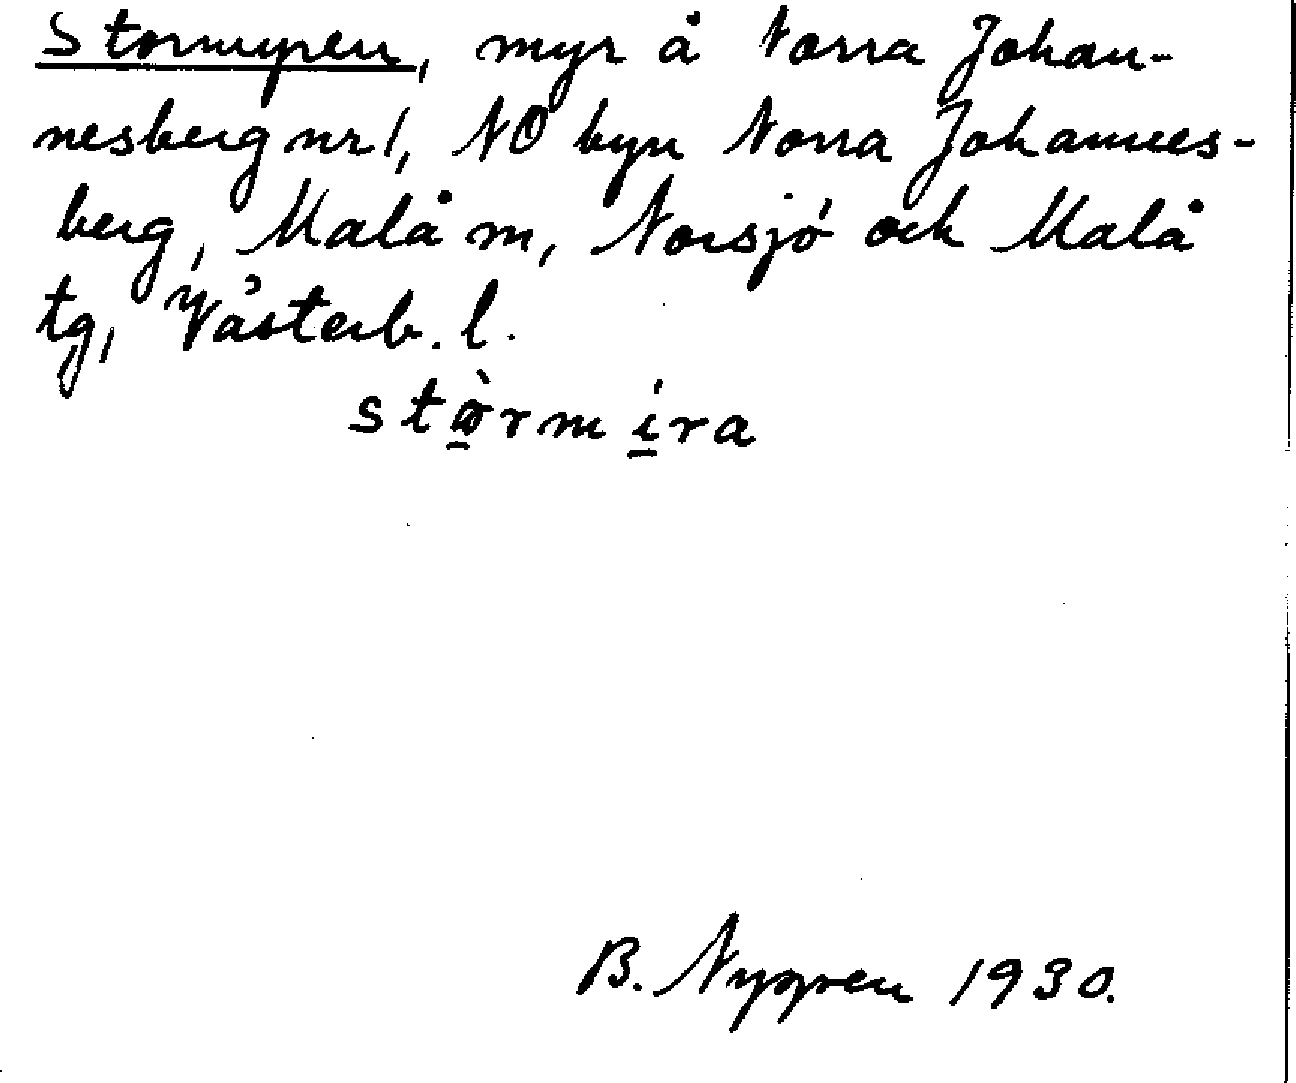 Stormyren, myr å Norra Johan-
nesberg nr 1, NO byn Norra Johannes-
berg, Malå m, Norsjö och Malå
tg, Västerb. l.
stò̱rmí̱ra
B. Nygren 1930.